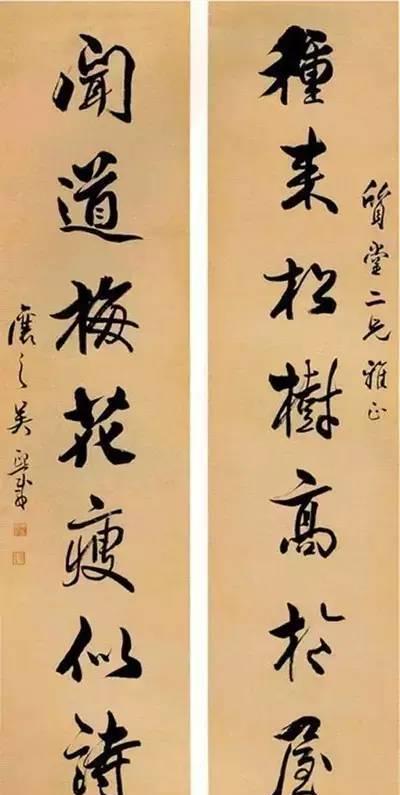 質堂二兄雅正
種来松樹高於屋
聞道梅花瘦似詩
之吴熙載